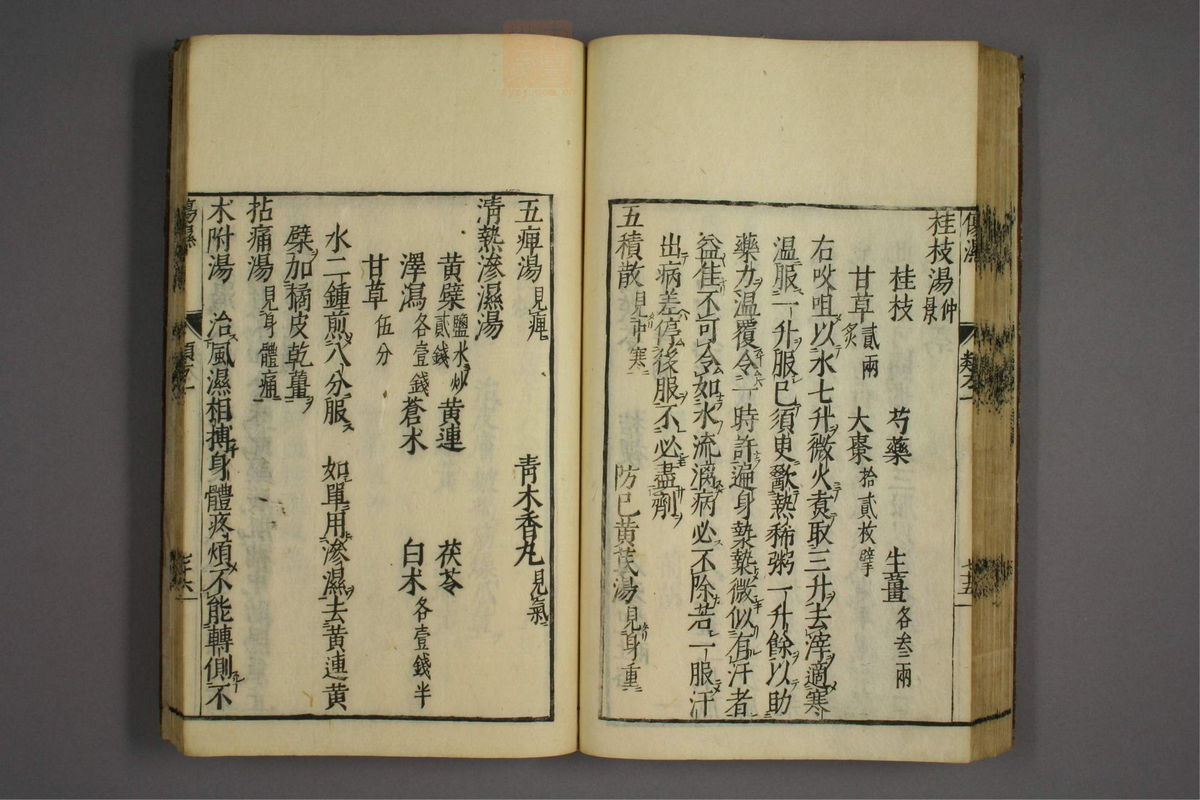 桂枝湯 仲景
桂枝 芍藥 生薑 各叁兩
甘草 貳兩炙 大棗 拾貳枚擘
右㕮咀以水七升微火煮取三升去滓適寒
温服一升服已須臾歠熱稀粥一升餘以助
藥力温覆令一時許遍身漐漐微似有汗者
益佳不可令如水流漓病必不除若一服汗
出病差停後服不必盡劑
五積散 見中寒 防已黄芪湯 見身重
五痺湯 見痺 青木香丸 見氣
清熱滲濕湯
黄蘗 鹽水炒貳錢 黄連 茯苓
澤瀉 各壹錢 蒼术 白术 各壹錢半
甘草 伍分
水二鍾煎八分服 如單用滲濕去黄連黄
蘗加橘皮乾薑
拈痛湯 見身體痛
术附湯 治風濕相搏身體疼煩不能轉側不
傷濕 七十六